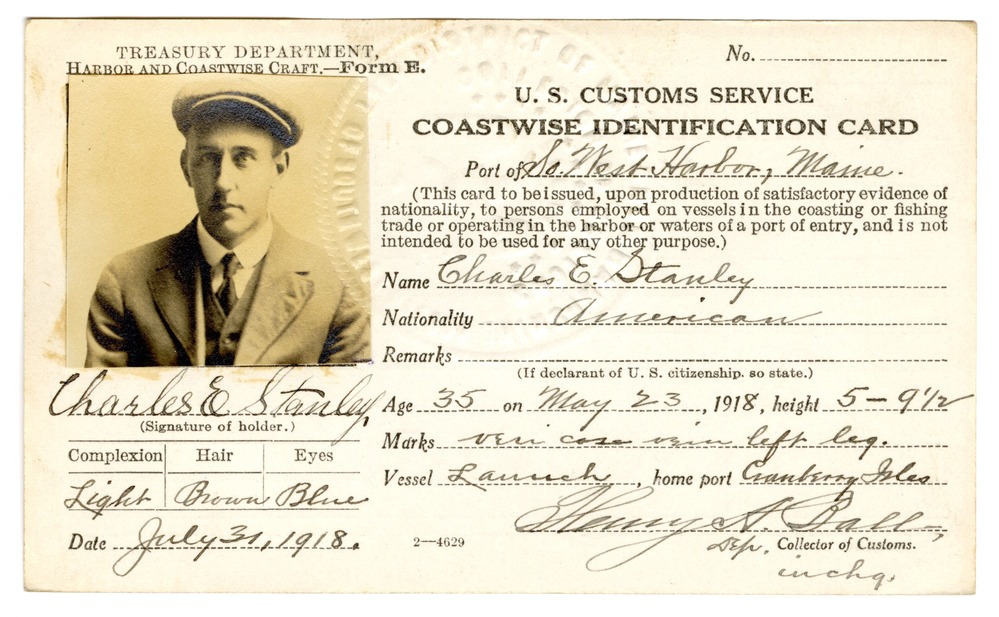 TREASURY DEPARTMENT,
HARBOR AND COASTWISE CRAFT.—Form E.
No.
U. S. CUSTOMS SERVICE
COASTWISE IDENTIFICATION CARD
Port of So. West Harbor, Maine.
(This card to be issued, upon production of satisfactory evidence of
nationality, to persons employed on vessels in the coasting or fishing
trade or operating in the harbor or waters of a port of entry, and is not
intended to be used for any other purpose.)
Name Charles E. Stanley
Nationality American
Remarks
(If declarant of U. S. citizenship. so state.)
Charles E Stanley,
(Signature of holder.)
Age 35 on May 23, 1918, height 5-9 1/2
Marks veri cose vein left leg.
Complexion Hair Eyes
Light Brown Blue
Vessel Launch, home port Cranberry Isles
Henry A. Ball,
Dep. Collector of Customs.
in chg.
Date July 31, 1918.
2—4629